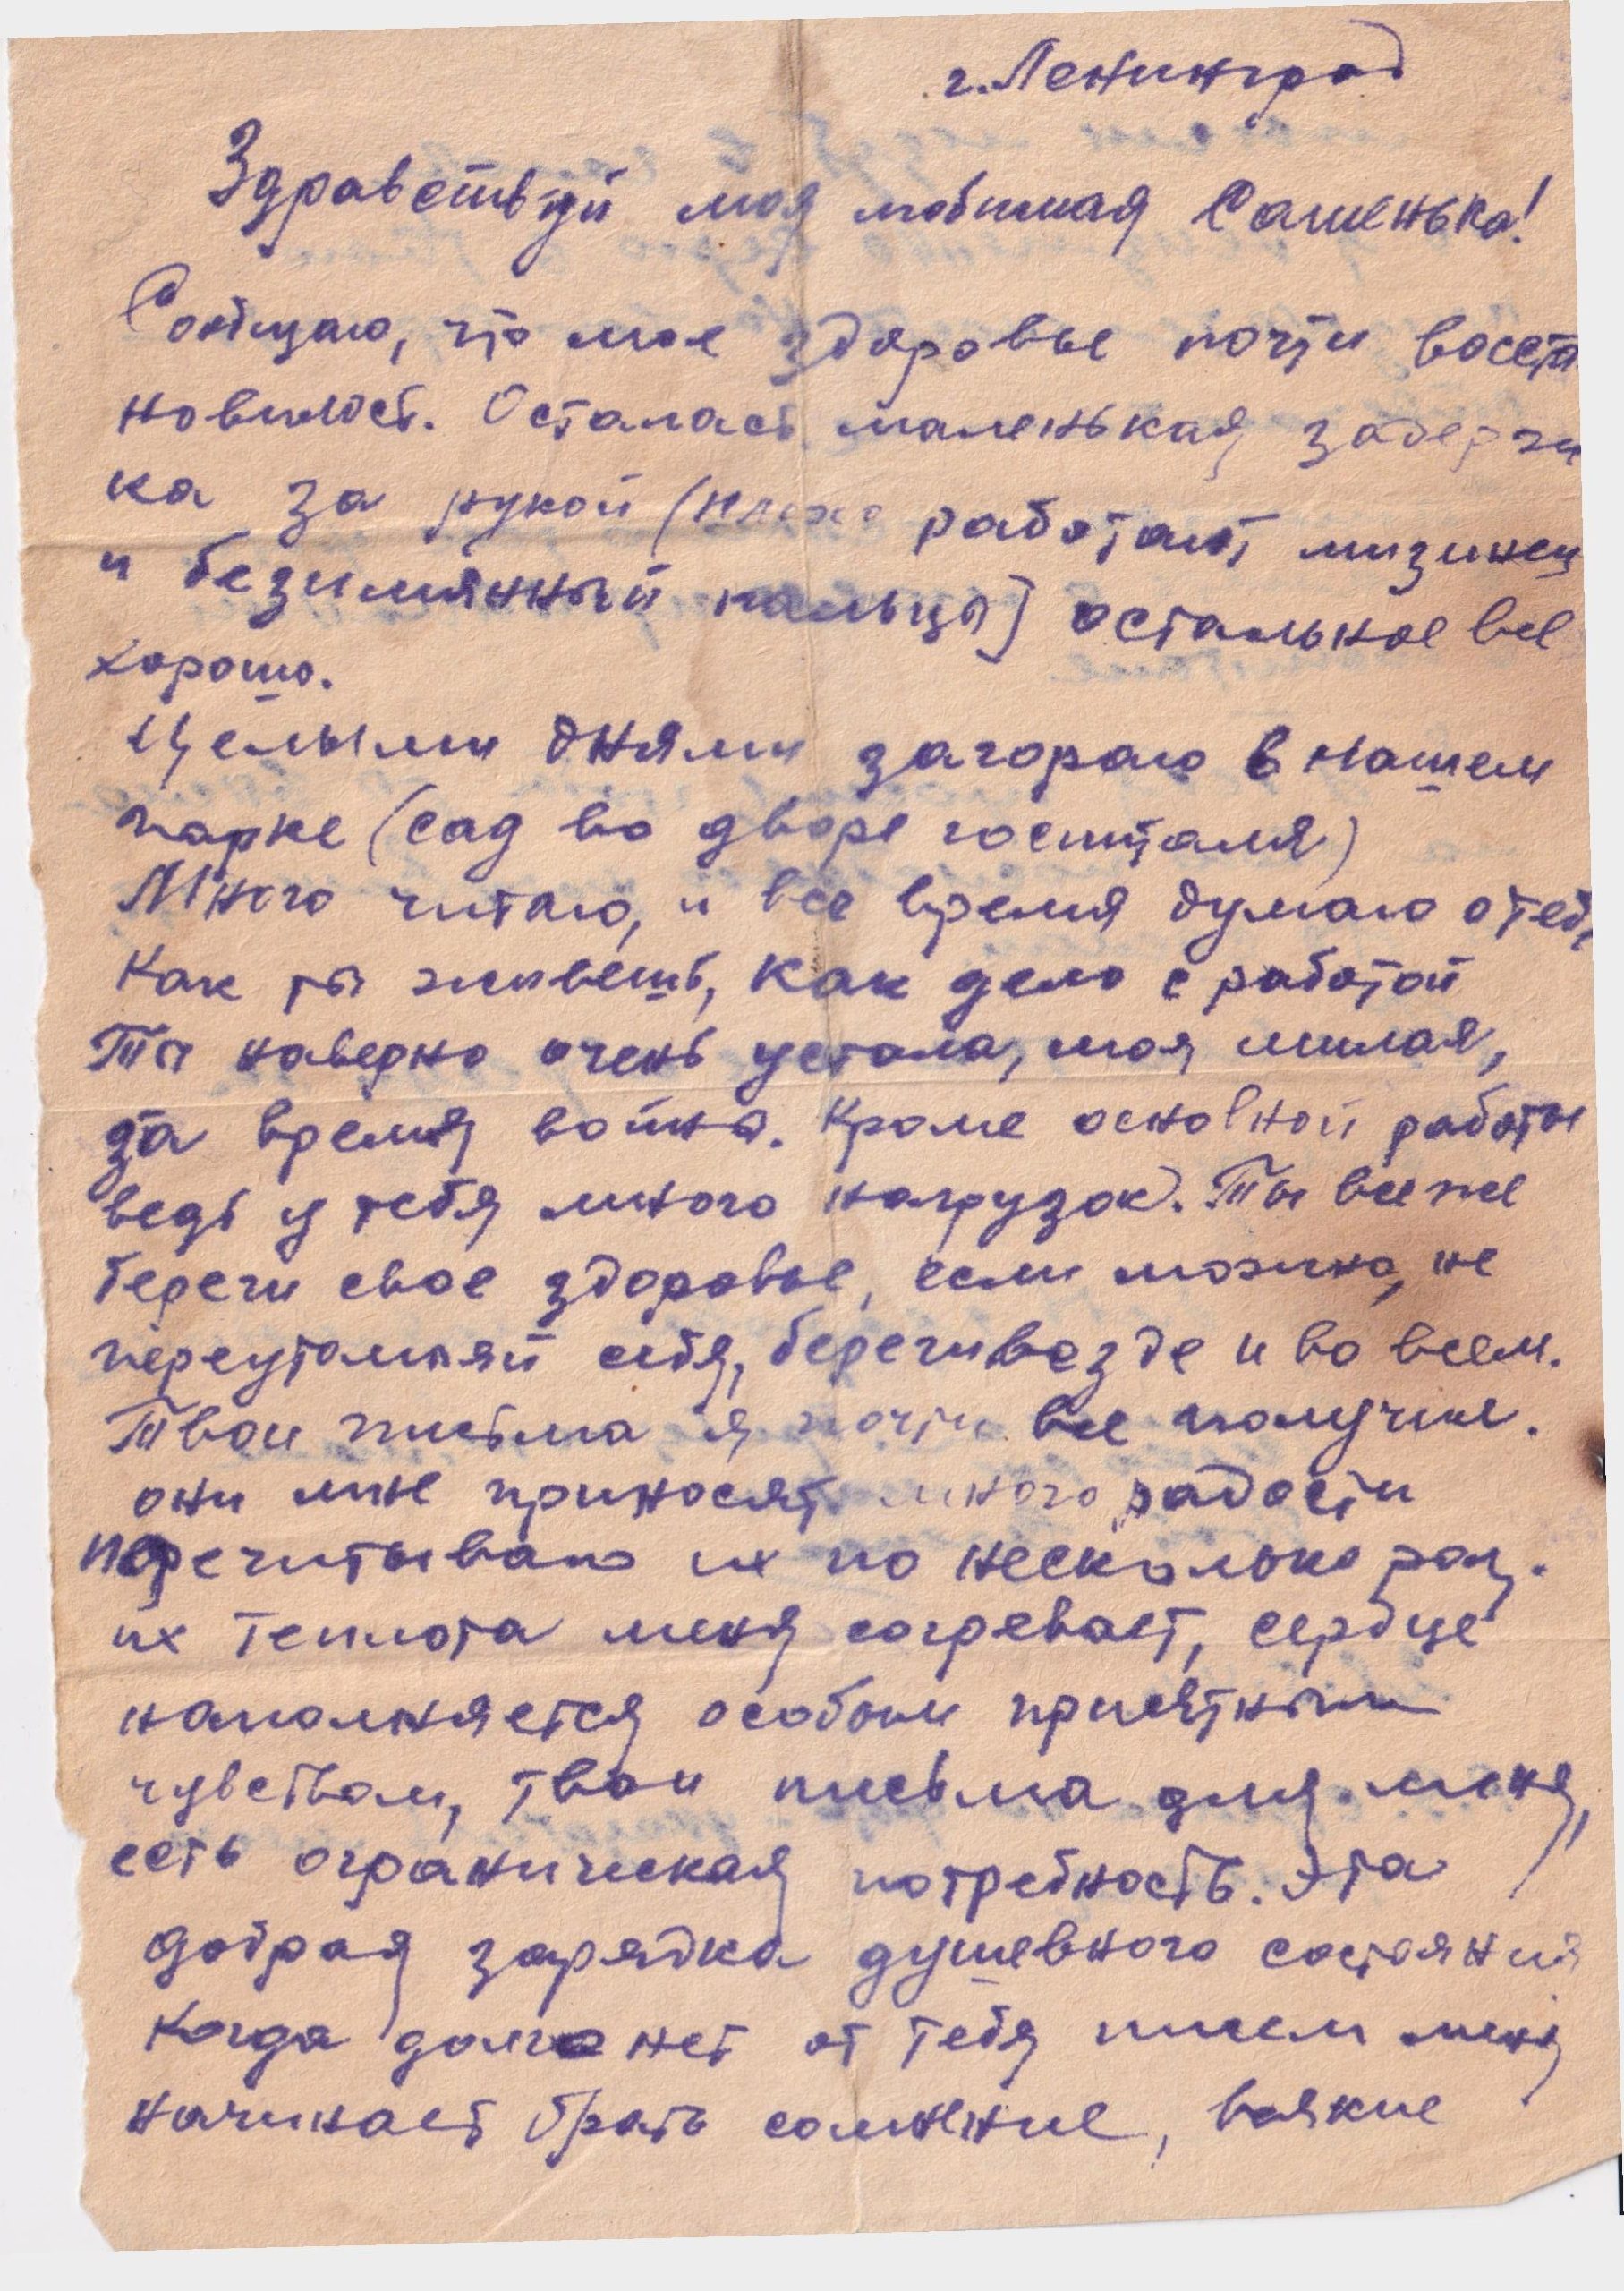 г. Ленинград
Здравствуй моя любимая Сашенька!
Сообщаю, что мое здоровье почти восста
новилось. Осталась маленькая задерж
ка за рукой (плохо работают мизинец
и безимянный пальцы) остальное все
хорошо.
Целыми днями загораю в нашем
парке (сад во дворе госпиталя)
Много читаю, и все время думаю о тебе,
Как ты живешь, как дело с работой
Ты наверно очень устала, моя милая,
за время войны. Кроме основной работы
ведь у тебя много нагрузок. Ты все же
береги свое здоровье, если можно, не
переутомляй себя, береги везде и во всем.
Твои письма я почти все получил.
они мне приносят много радости
перечитываю их по несколько раз.
их теплота меня согревает, сердце
наполняется особым приятным
чувством, твои письма для меня,
есть ограническая потребность. Эта
добрая зарядка душевного состояния
Когда долго нет от тебя писем меня
начинает брать сомнение, всякие